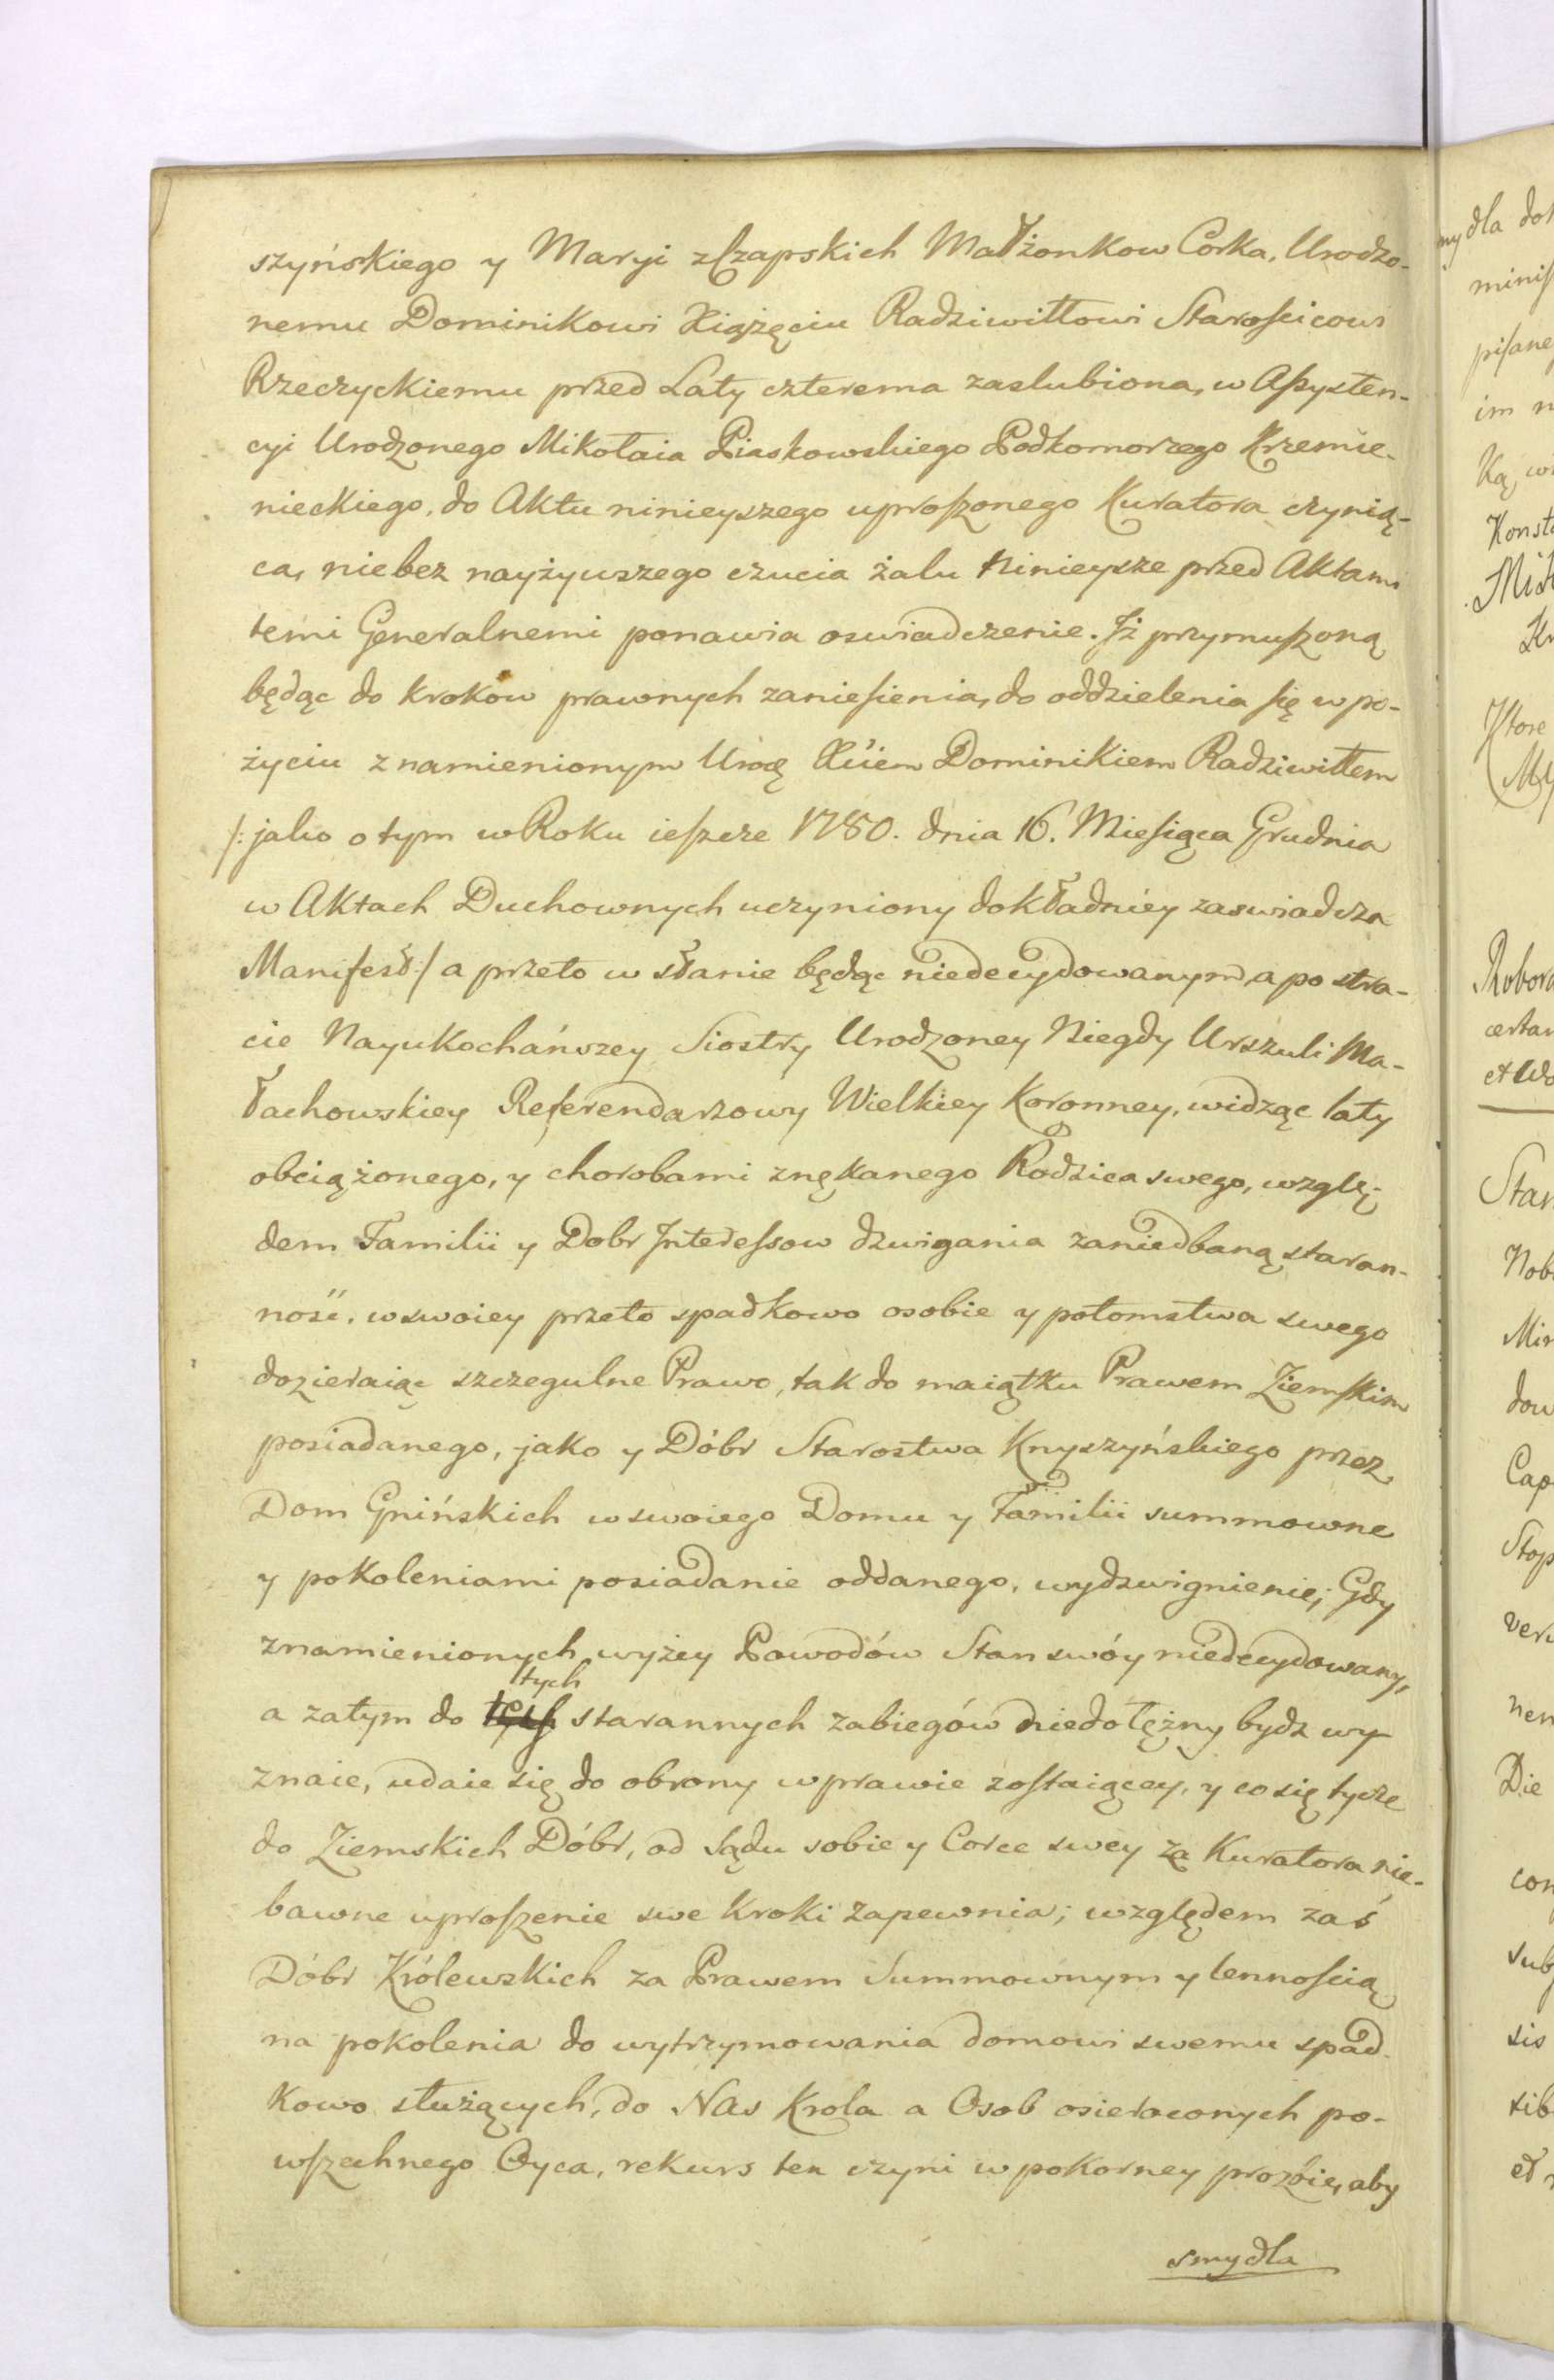 szyńskiego y Maryi z Czapskich Małżonkow Corka, Urodzo-
nemu Dominikowi Xiążęciu Radziwiłłowi Starościcowi
Rzeczyckiemu przed Laty czterema zaslubiona, w Assysten-
cyi Urodzonego Mikołaia Piaskowskiego Podkomorzego Krzemie-
nieckiego, do Aktu ninieyszego uproszonego Kuratora czynią-
ca, niebez nayżywszego czucia żalu Ninieysze przed Aktami
temi Generalnemi ponawia oswiadczenie. Iż przymuszoną
będąc do krokow prawnych zaniesienia, do oddzielenia się w po-
życiu z namienionym Urodz Xciem Dominikiem Radziwiłłem
/: jako o tym w Roku ieszcze 1780. dnia 16. Miesiąca Grudnia
w Aktach Duchownych uczyniony dokładniey zaswiadcza
Manifest :/ a przeto w stanie będąc niedecydowanym, a po stra-
cie Nayukochańszey Siostry Urodzoney Niegdy Urszuli Ma-
łachowskiey Referendarzowy Wielkiey Koronney, widząc laty
obciążonego, y chorobami znękanego Rodzica swego, wzglę-
dem Familii y Dobr Interessow dzwigania zaniedbaną staran-
ność, w swoiey przeto spadkowo osobie y potomstwa swego
dozieraiąc szczegulne Prawo, tak do maiątku Prawem Ziemskim
posiadanego, jako y Dóbr Starostwa Knyszyńskiego przez
Dom Gnińskich w swoiego Domu y Familii summowne
y pokoleniami posiadanie oddanego, wydzwignienie; Gdy
z namienionych wyżey Powodów Stan swóy niedecydowany,
a zatym do tych starannych zabiegów niedołężny bydz wy
znaie, udaie się do obrony w prawie zostaiącey, y co się tycze
do Ziemskich Dóbr, od Sądu sobie y Corce swey za Kuratora nie-
bawne uproszenie swe kroki zapewnia; względem zaś
Dóbr Królewskich za Prawem Summownym y lennością
na pokolenia do wytrzymowania domowi swemu spad-
kowo służących, do NAs Krola a Osob osieroconych po-
wszechnego Oyca, rekurs ten czyni w pokorney prozbie, aby
smy dla